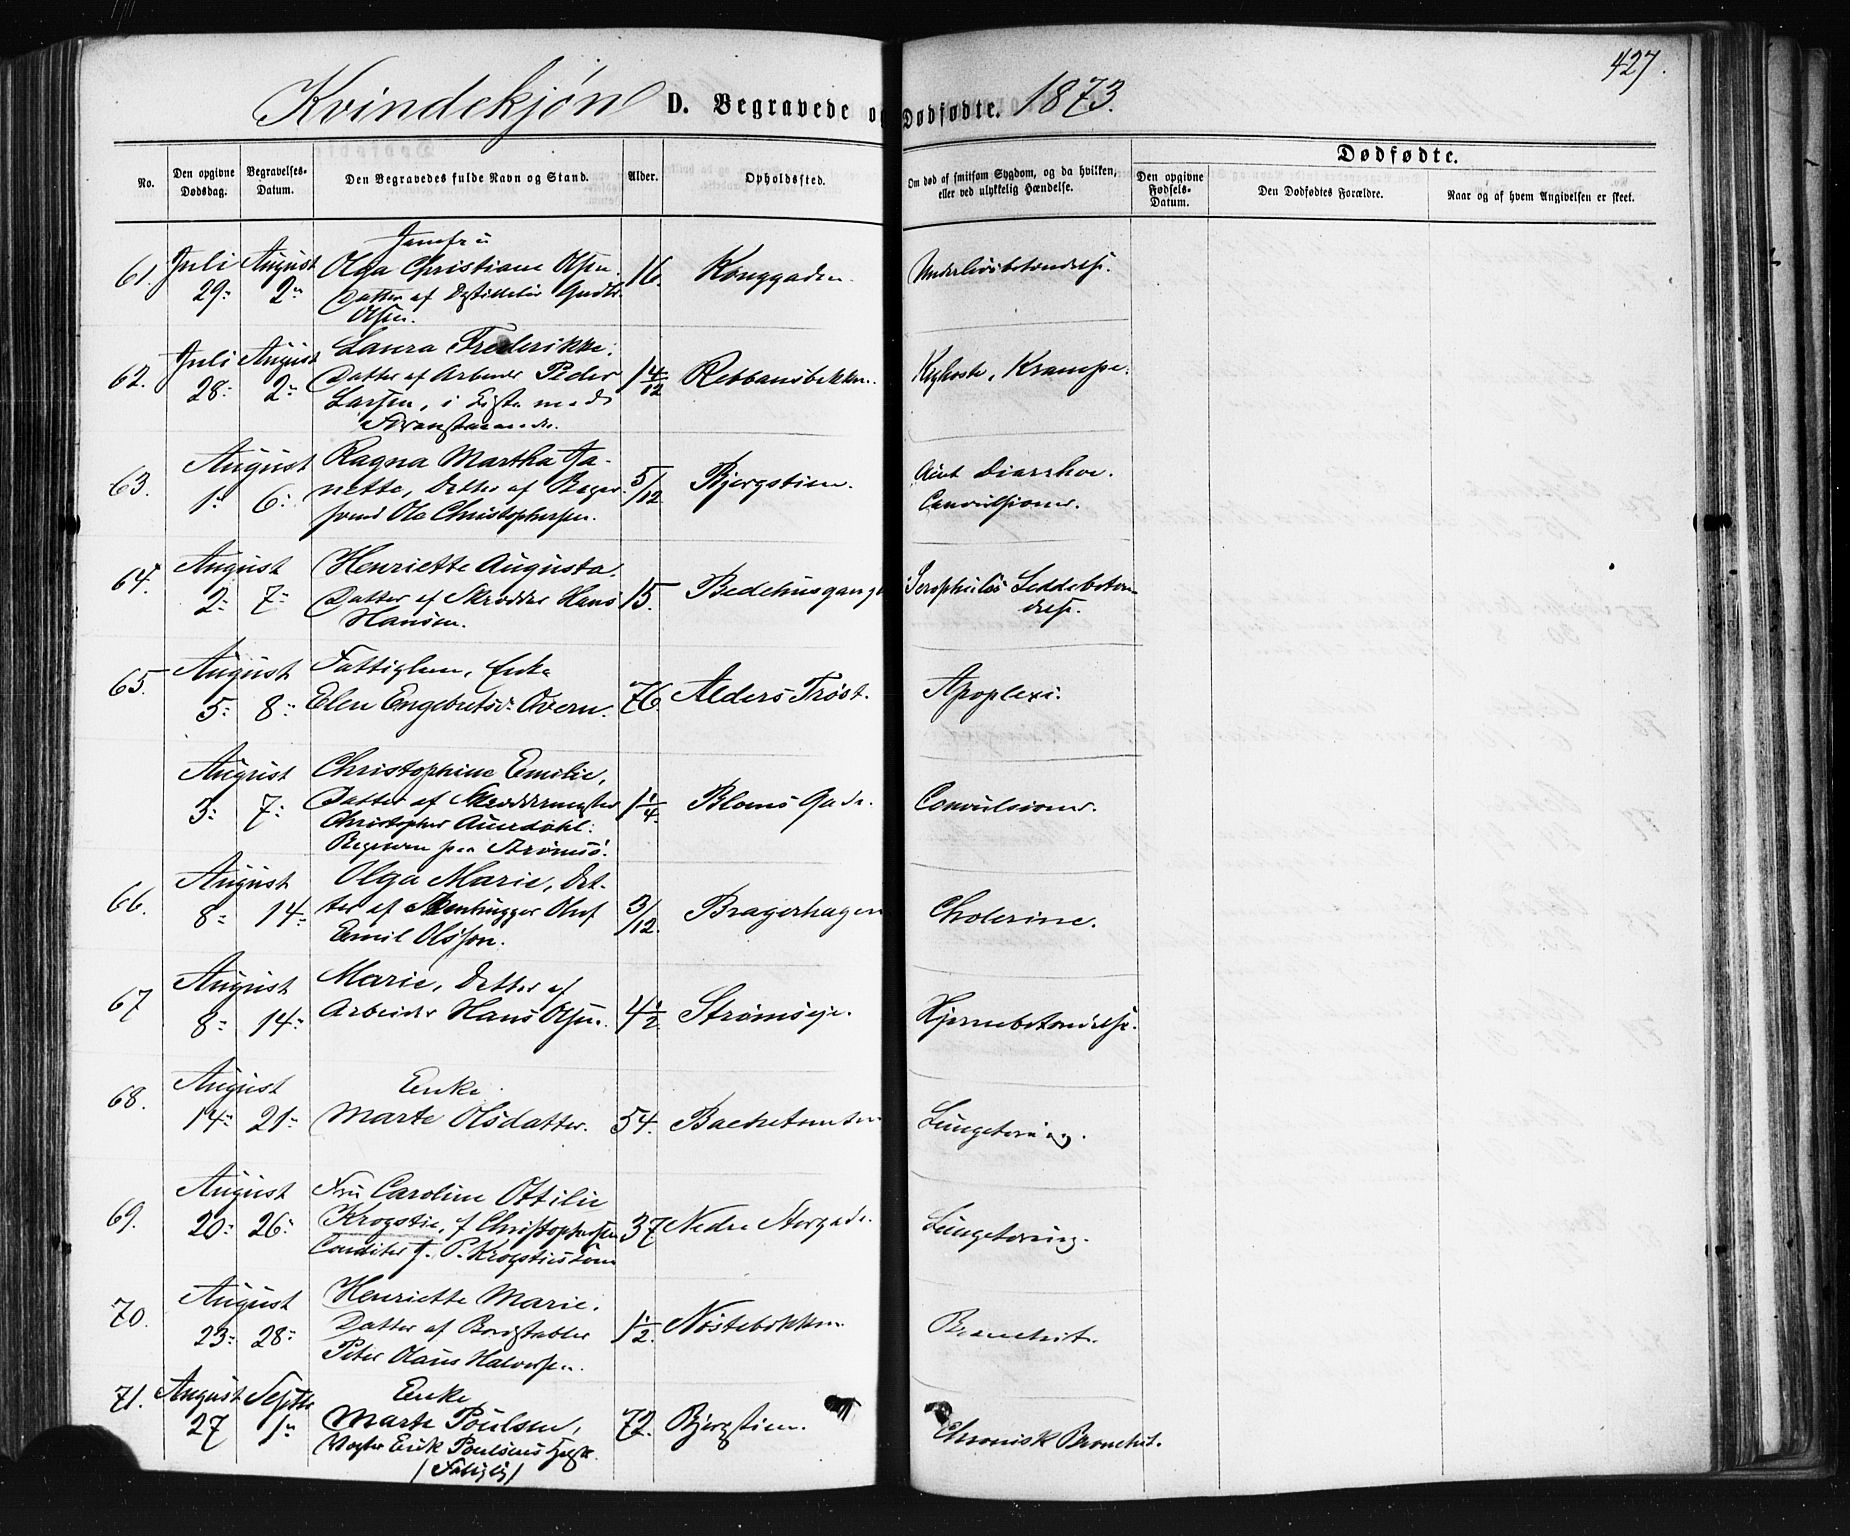 427.
Kvindekjøn D. Begravede og Dødfødte. 1873.
No.
Den opgivne Dødsdag.
Begravelses-Datum.
Den Begravedes fulde Navn og Stand.
Alder.
Opholdssted.
Om død af smitsom Sygdom, og da hvilken, eller ved ulykkelig Hændelse.
Dødfødte.
Den opgivne Fødsels-Datum.
Den Dødfødtes Forældre.
Naar og af hvem Angivelsen er skeet.
Jomfru
61. Juli August Olga Christiane Olsen. 16. Konggaden. Underlivsbetændelse.
29 2 Datter af Destillatør
Olsen.
62. Juli August Laura Frederikke.
28 2 Datter af Arbeider Peder 1 4/12 Rebbansbakken. Kighoste, Krampe.
Larsen, i Egte
63. August Ragna Martha Ja-
1 6 nette, Datter af 5/12 Bjergstien. Acut Diarrhoe.
svend Ole Christophersen. Convulsioner.
64. August Henriette Augusta.
2 7 Datter af Skrædder Hans 15. Bedehusgangen Scrophuløs Leddebetæn-
Hansen. delse.
65. August Fattiglem, Enke
5 8 Elen Engebretsd. Overn. 76. Alders Trøst. Apoplexi.
August Christophine Emilie,
3 7 Datter af Skræddermester 1 1/4 Bloms Gade. Convulsioner.
Christopher
Begraven paa Strømsø.
66. August Olga Marie, Dat-
8 14 ter af Stenhugger Oluf 3/12. Bragerhagen Cholerine.
Emil Olsson.
67 August Marie, Datter af
8 14 Arbeider Hans Olsen. 4 1/2 Strømsøje. Hjernebetændelse.
68. August Enke
14 21 Marte Olsdatter. 54. Bachetomten Lungetæring.
69. August Fru Caroline Ottilie
20 26 Krogstie, f Christophersen 37 Nedre Storgade. Lungetæring.
Conditor P. Krogsties Kone
70. August Henriette Marie.
23 28 Datter af Bordstabler 1 1/2. Nøstebakken. Bronchit.
Peter Olaus Halvorsen.
71. August Septbr Enke
27 1 Marte Poulsen, 72. Bjergstien. Chronisk Bronchit.
Vægter Erik Poulsens
(Fattig)